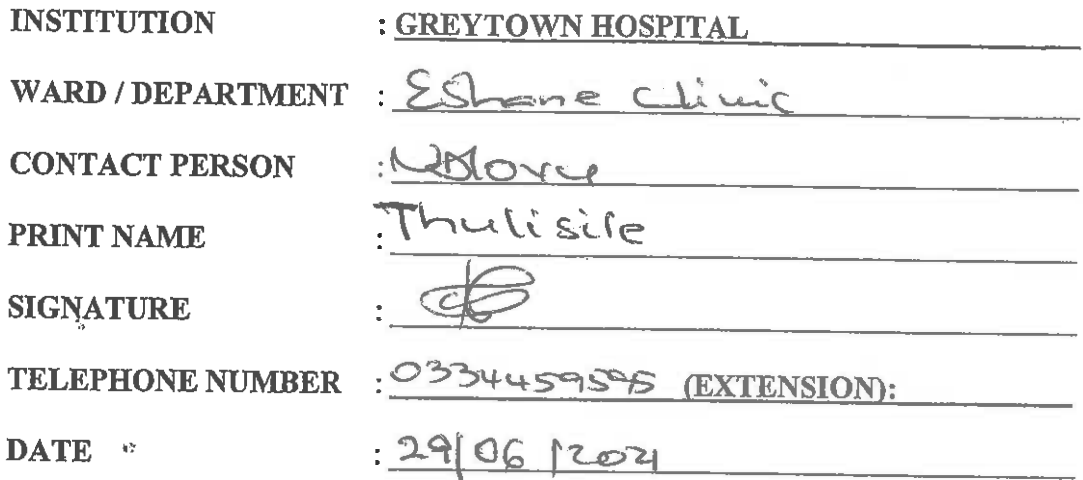 INSTITUTION : GREYTOWN HOSPITAL
WARD / DEPARTMENT : EShane Clinic
CONTACT PERSON :
PRINT NAME : Thulisile
SIGNATURE :
TELEPHONE NUMBER : 0334459595 (EXTENSION):
DATE : 29/06/2021